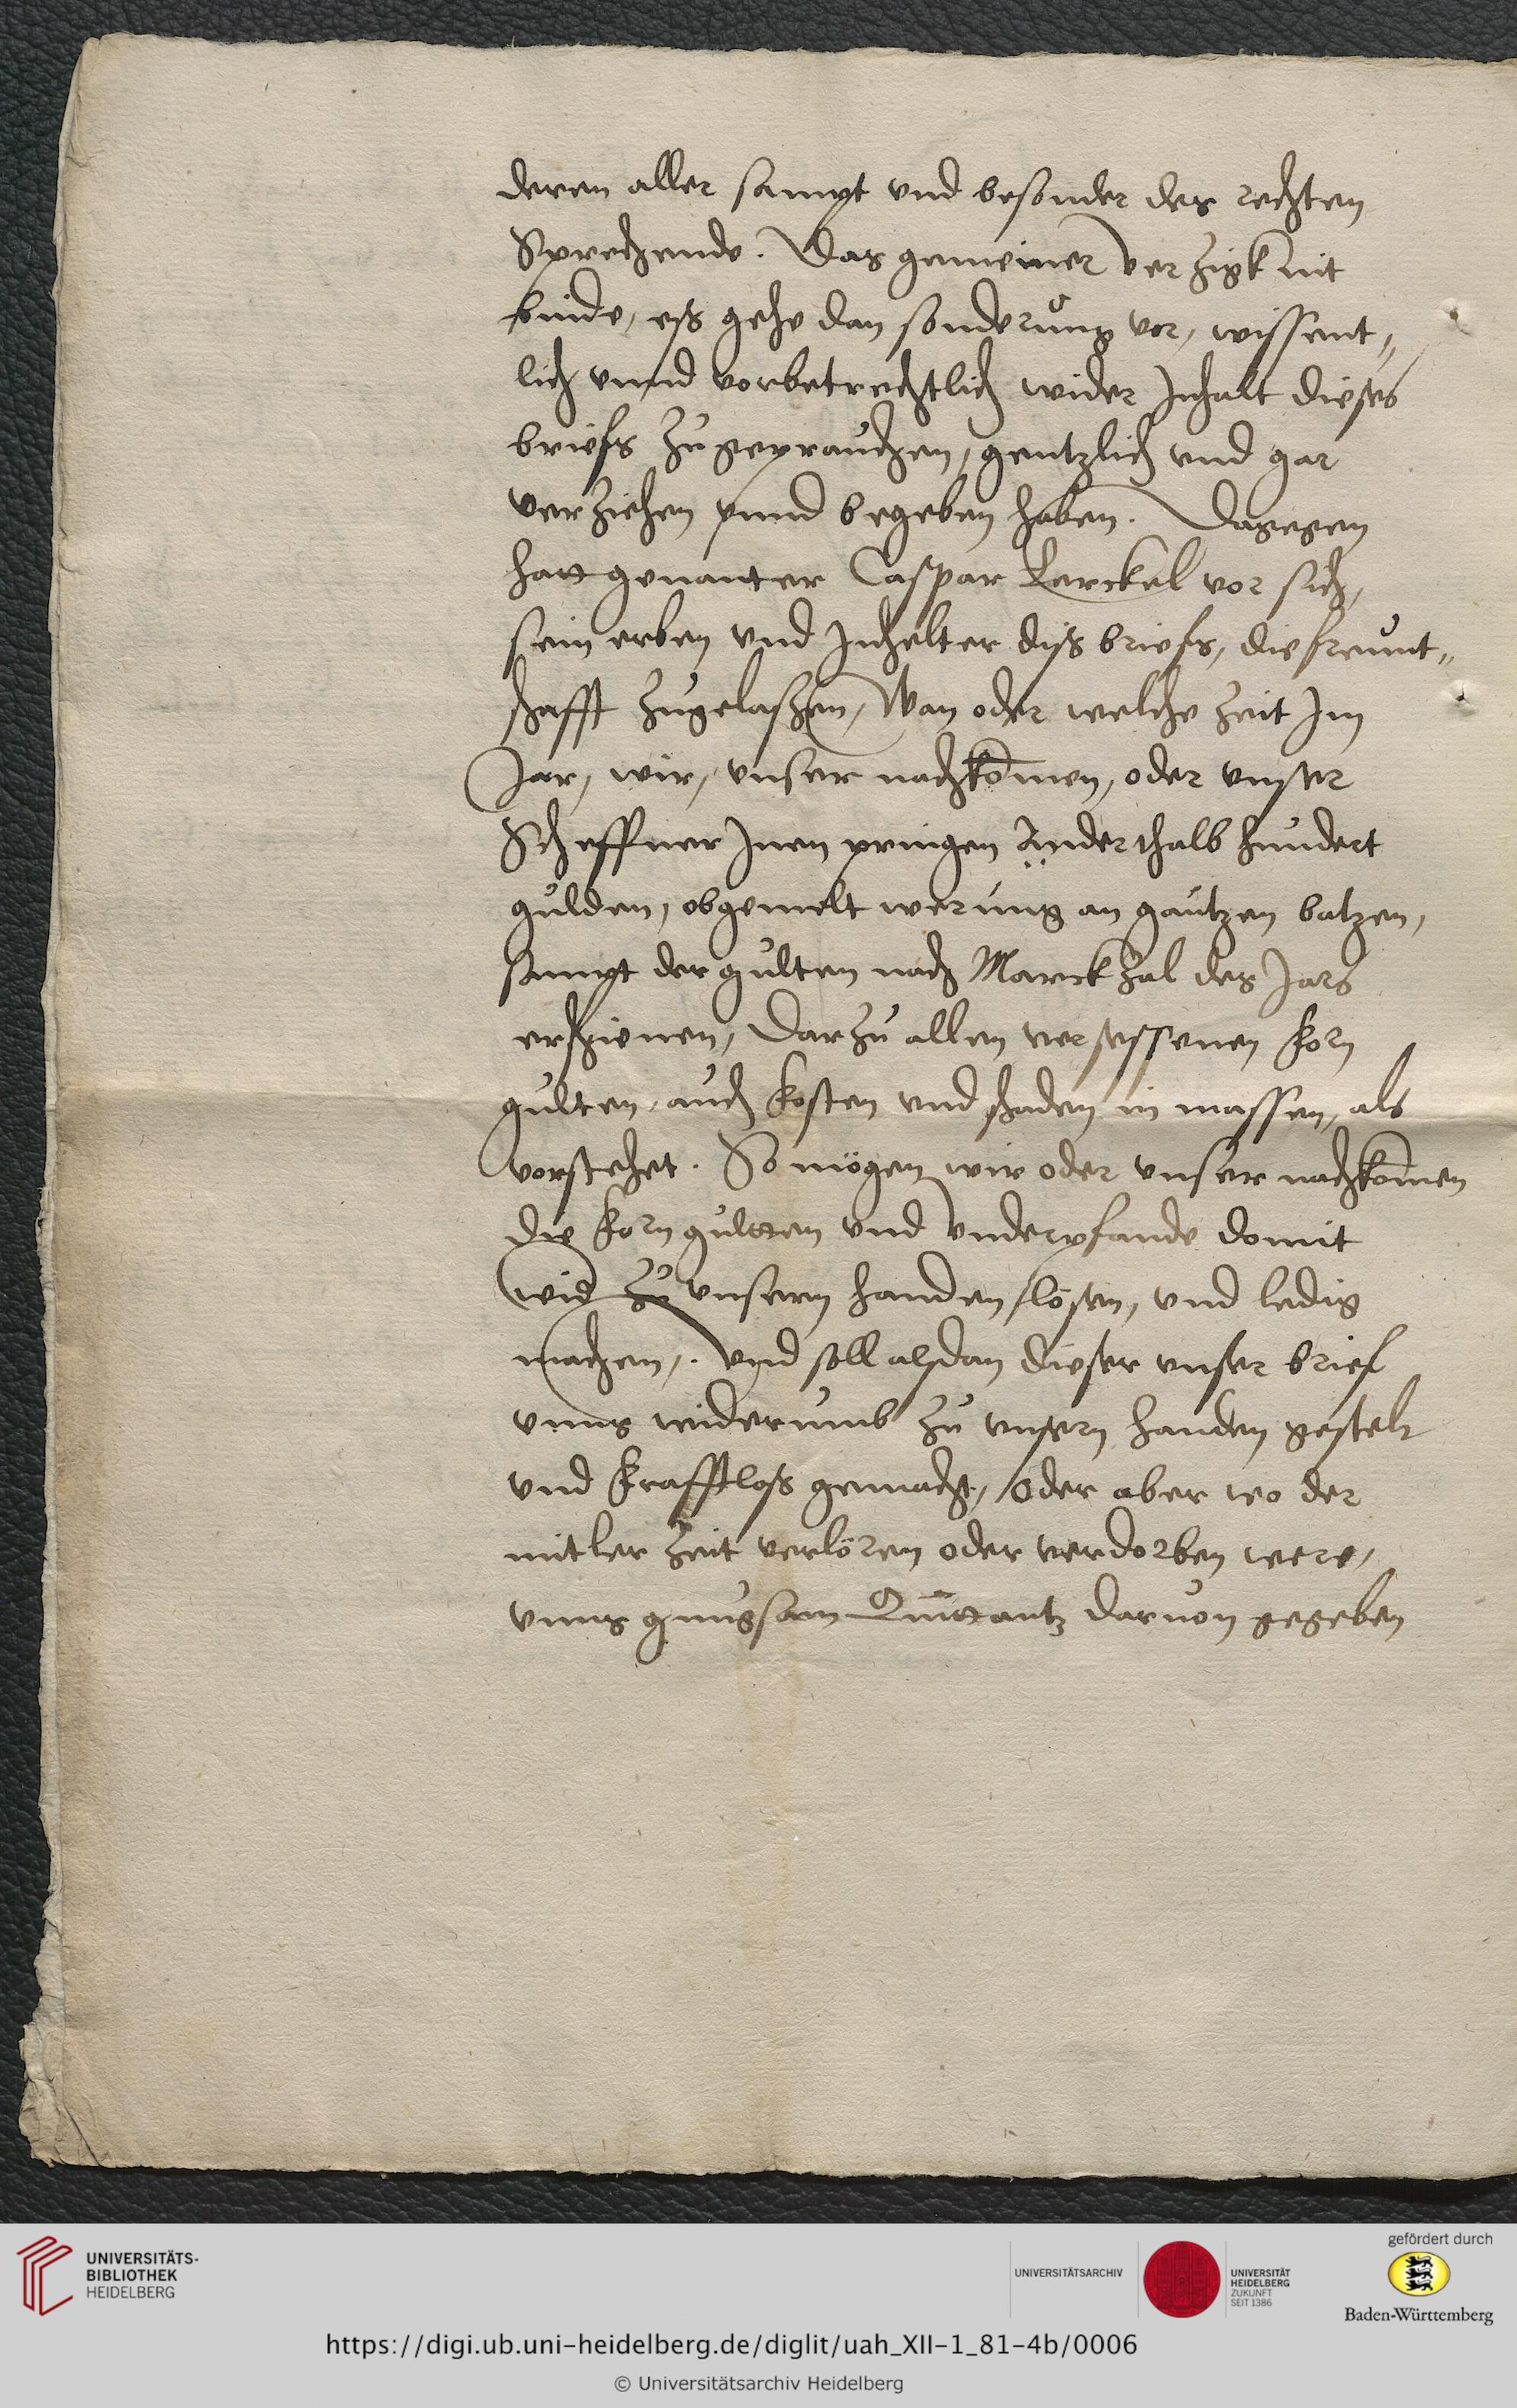 deren aller sampt vnd besonder des rechten
Sprechende. Das gemeiner verzigk nit
binde, eß gehe dan sonderung vor, wissent„
lich vnnd vorbetrechtlich wider Inhalt dieses
briefs zugeprauchen, gentzlich vnd gar
verziehen vnnd begeben haben. Dagegen
hatt genanter Caspar Lerckel vor sich,
sein erben vnd Inhelter diß briefs, die freunt„
schafft zugelaßen, Wan oder welche Zeit Im
Jar, wir, vnser nachkomen, oder vnser
Scheffner Inen pringen Anderthalb hundert
gulden, obgemelt werung an gantzen batzen,
sampt der gulten nach Marckzal des Jars
erschienen, Darzu allen versessenen korn
gulten, auch kosten vnd schaden in massen, als
vorstehet. So mögen wir oder vnser nachkomen
die korn gultten vnd Vnderpfande domit
wid zu vnsern handen lösen, vnd ledig
machen,. Vnd soll alsdan dieser vnser brief
vnns widerumb zu vnsern handen gestelt
vnd krafftloß gemacht, Oder aber wo der
mitler Zeit verlören oder verdorben were,
vnns gnugsam Quittantz daruon gegeben
UNIVERSITÄTS-
BIBLIOTHEK
HEIDELBERG
UNIVERSITÄTSARCHIV
UNIVERSITÄT
HEIDELBERG
ZUKUNFT
SEIT 1386
gefördert durch
Baden-Württemberg
https://digi.ub.uni-heidelberg.de/diglit/uah_XII-1_81-4b/0006
© Universitätsarchiv Heidelberg